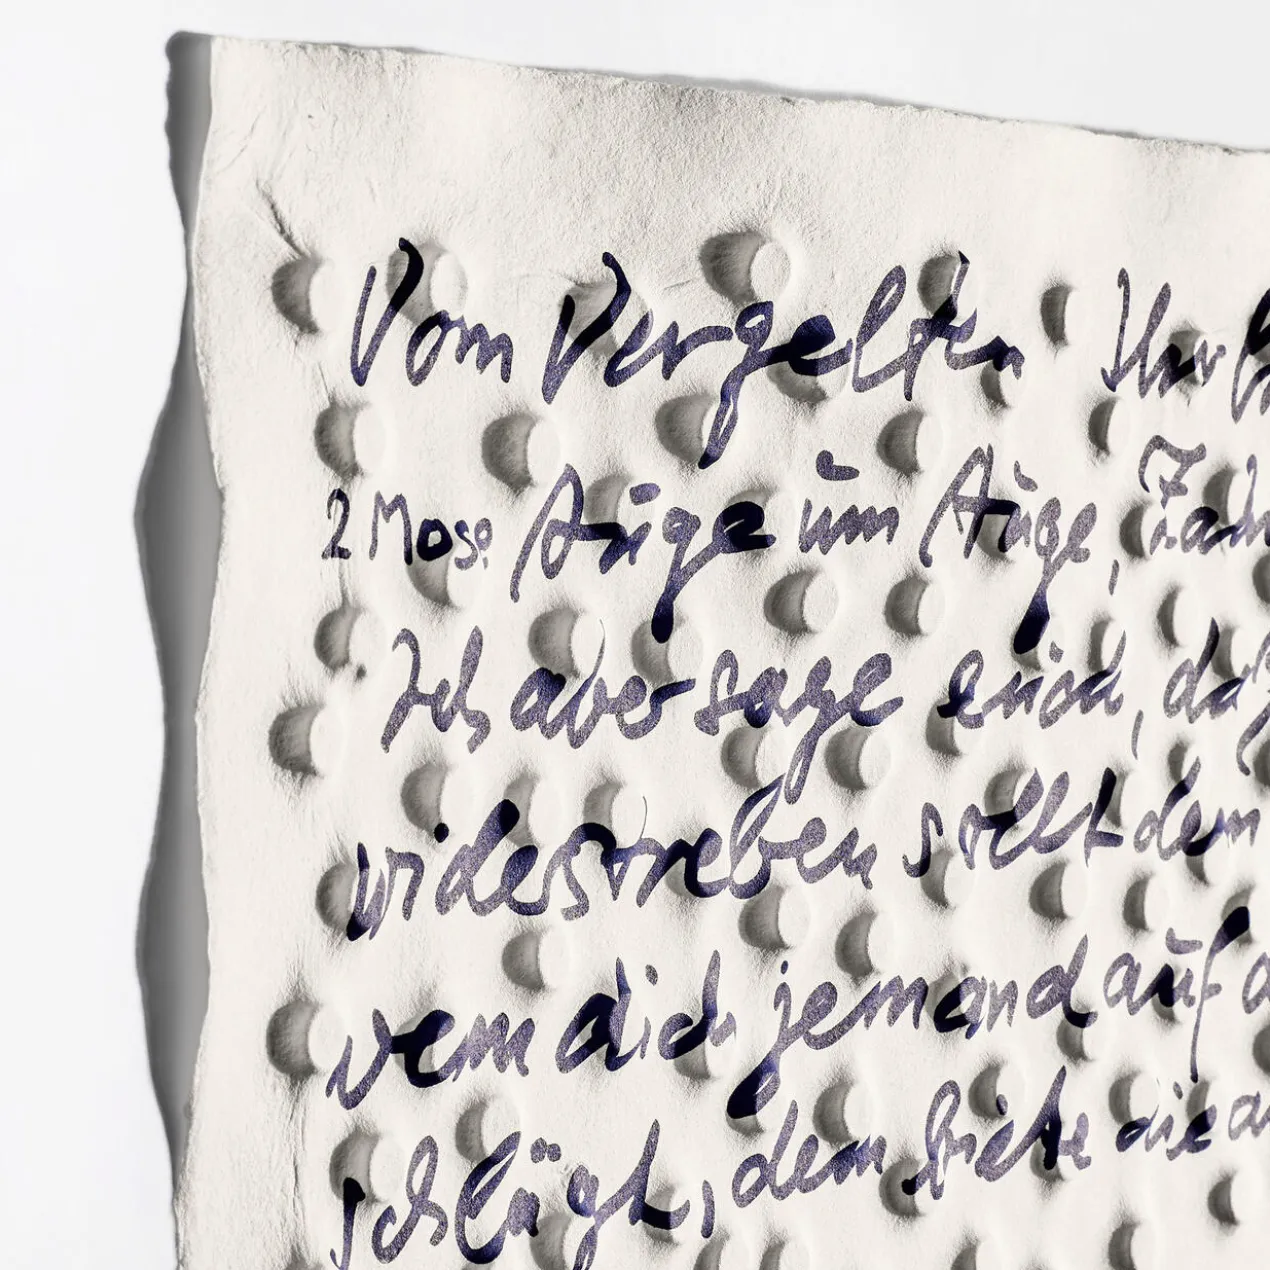 Vom Vergelten Ihr
2 Mose Auge um Auge, Zah
Ich aber sage euch, daß
widerstreben sollt dem
wenn dich jemand auf d
schlägt, dem biete die a